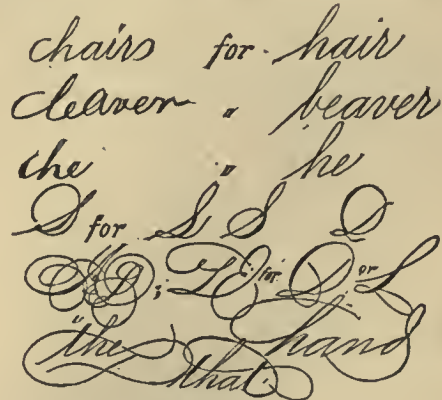 chairs for hair
cleaver „ beaver
che „ he
S for S S S
for or S
the hand
that.